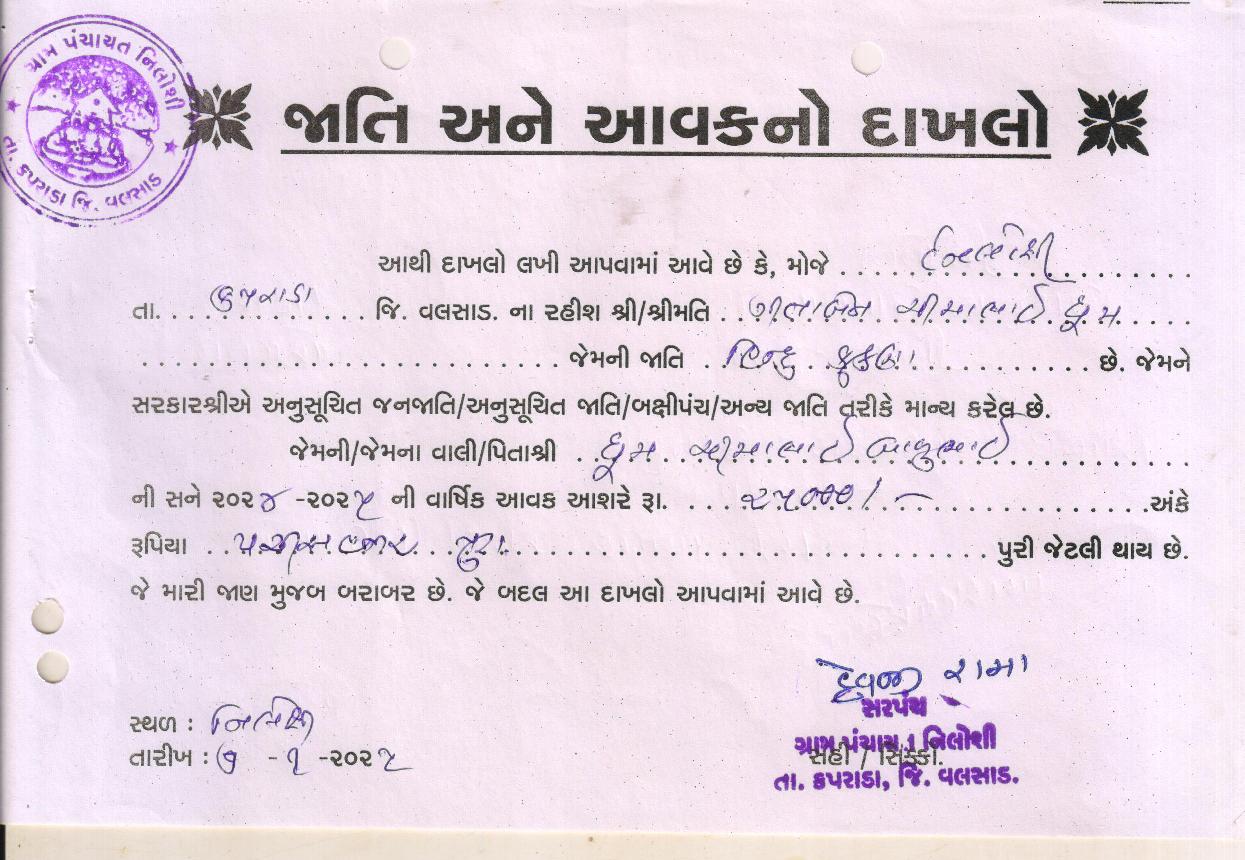 ગ્રામ પંચાયત નિલોશી
તા. કપરાડા જિ. વલસાડ
જાતિ અને આવકનો દાખલો
આથી દાખલો લખી આપવામાં આવે છે કે, મોજે નિલોશી
તા. કપરાડા જિ. વલસાડ. ના રહીશ શ્રી/શ્રીમતિ સીમાભાઈ ધુમ
જેમની જાતિ હિન્દુ કુકણા છે. જેમને
સરકારશ્રીએ અનુસૂચિત જનજાતિ/અનુસૂચિત જાતિ/બક્ષીપંચ/અન્ય જાતિ તરીકે માન્ય કરેલ છે.
જેમની/જેમના વાલી/પિતાશ્રી ધુમ સીમાભાઈ
ની સને ૨૦૨૪ -૨૦૨૫ ની વાર્ષિક આવક આશરે રૂા. ૨૫૦૦૦/- અંકે
રૂપિયા પચ્ચીસ હજાર પુરા પુરી જેટલી થાય છે.
જે મારી જાણ મુજબ બરાબર છે. જે બદલ આ દાખલો આપવામાં આવે છે.
દેવજી રામા
સરપંચ
સ્થળ : નિલોશી
ગ્રામ પંચાયત નિલોશી
તારીખ : ૭ - ૧ -૨૦૨૫
સહી / સિક્કો.
તા. કપરાડા, જિ. વલસાડ.